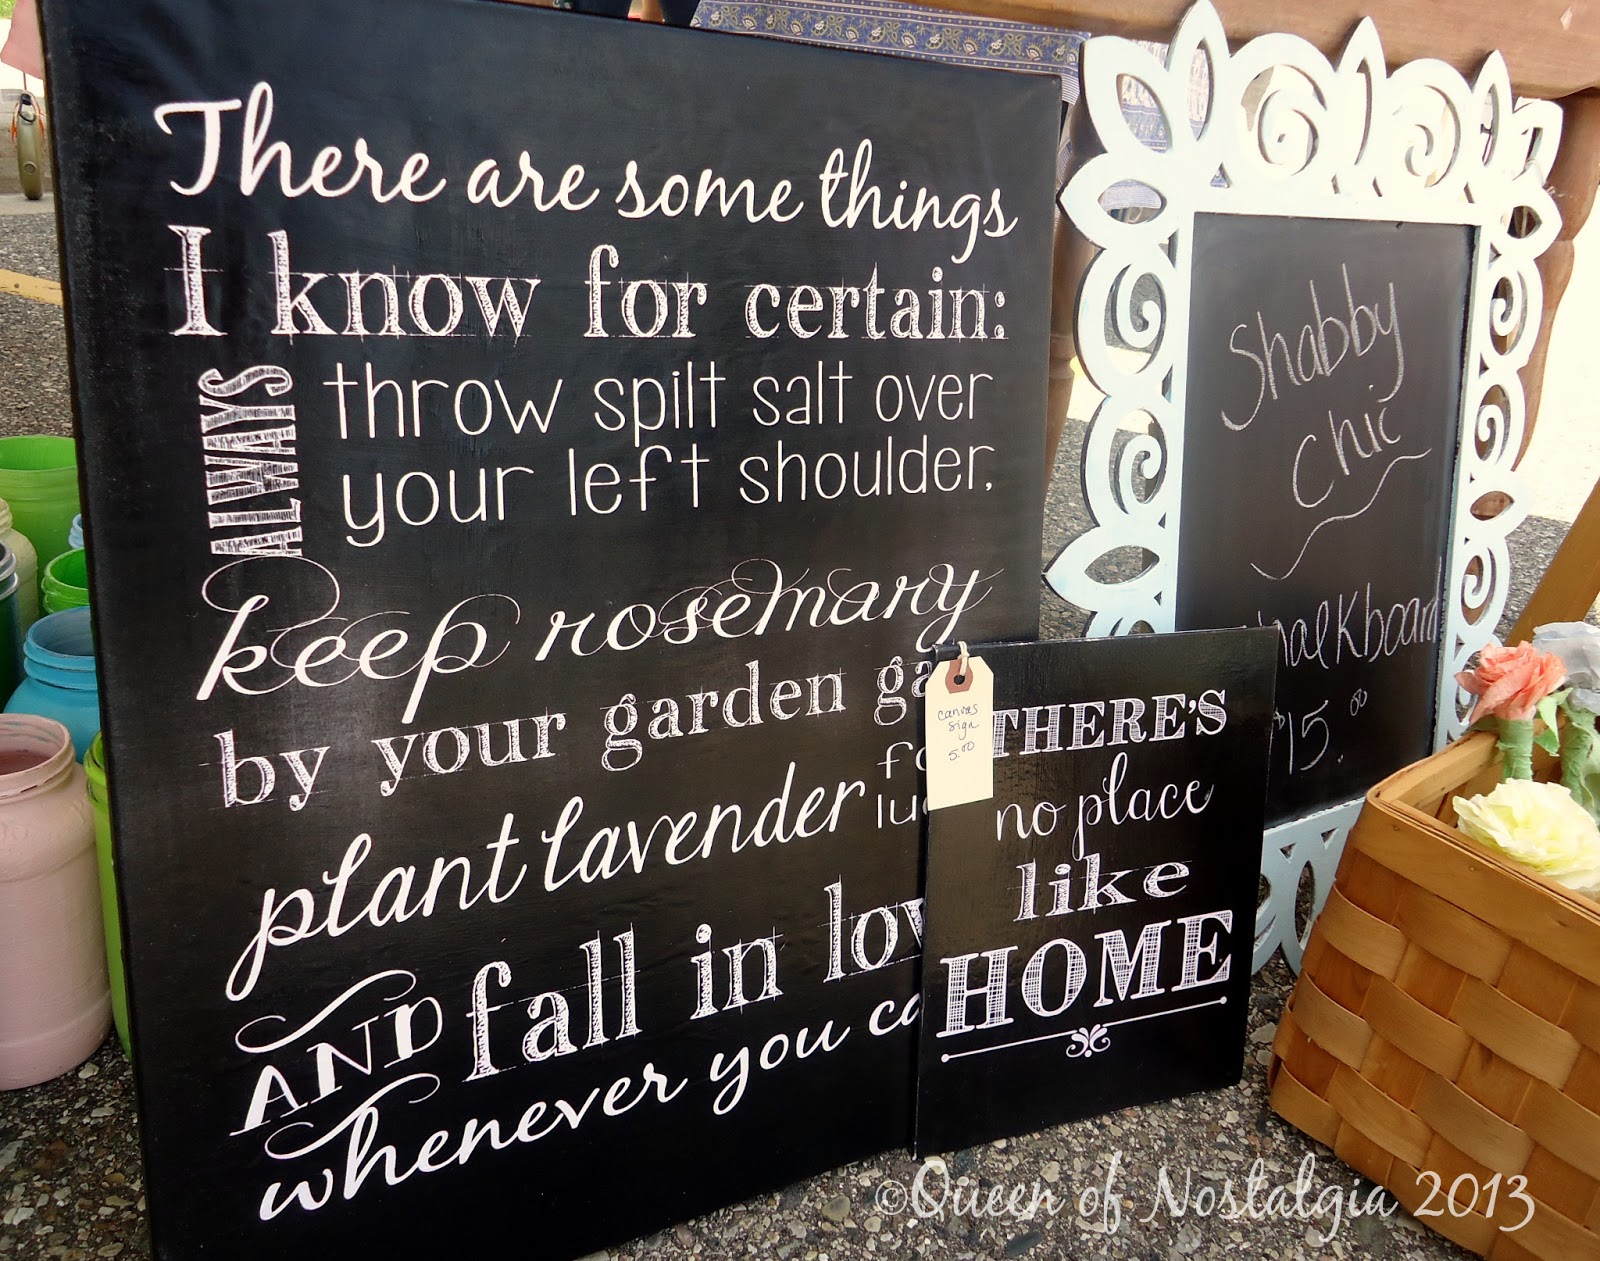 There are some things
I know for certain:
ALWAYS
throw spilt salt over
your left shoulder.
keep rosemary
by your garden ga
plant lavender
AND fall in lov
whenever you ca
canvas
sign
5.00
THERE'S
no place
like
HOME
Shabby
Chic
halkboard
$15.00
©Queen of Nostalgia 2013